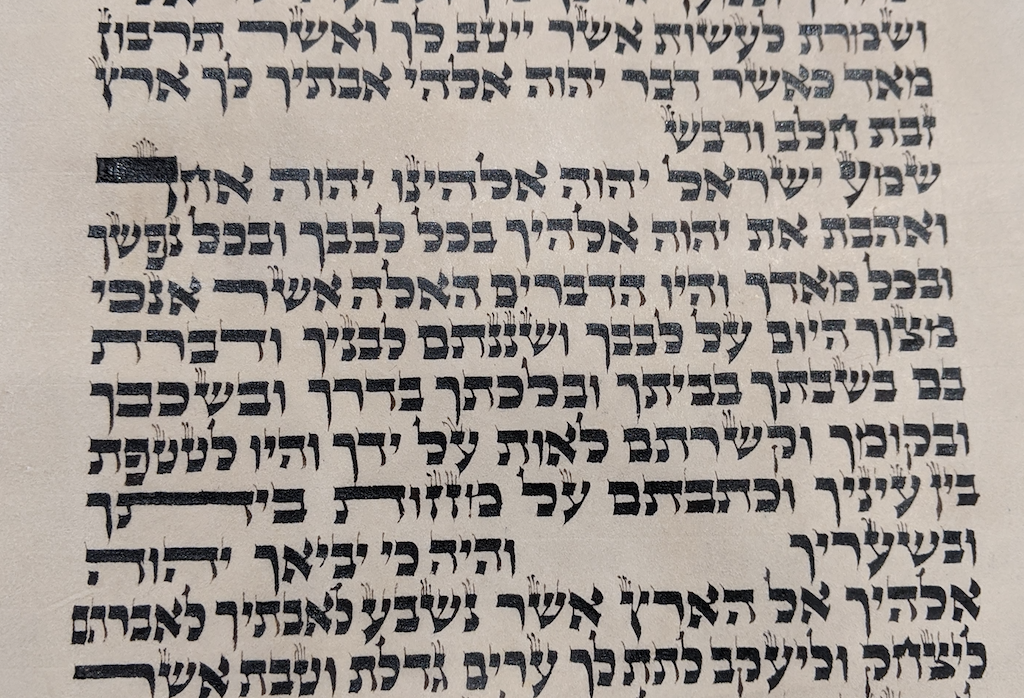 ושמרת לעשות אשר ייטב לך ואשר תרבון
מאד כאשר דבר יהוה אלהי אבתיך לך ארץ
זבת חלב ודבש
שמע ישראל יהוה אלהינו יהוה אחד
ואהבת את יהוה אלהיך בכל לבבך ובכל נפשך
ובכל מאדך והיו הדברים האלה אשר אנכי
מצוך היום על לבבך ושננתם לבניך ודברת
בם בשבתך בביתך ובלכתך בדרך ובשכבך
ובקומך וקשרתם לאות על ידך והיו לטטפת
בין עיניך וכתבתם על מזוזת ביתך
ובשעריך והיה כי יביאך יהוה
אלהיך אל הארץ אשר נשבע לאבתיך לאברהם
ליצחק וליעקב לתת לך ערים גדלת וטבת אשר